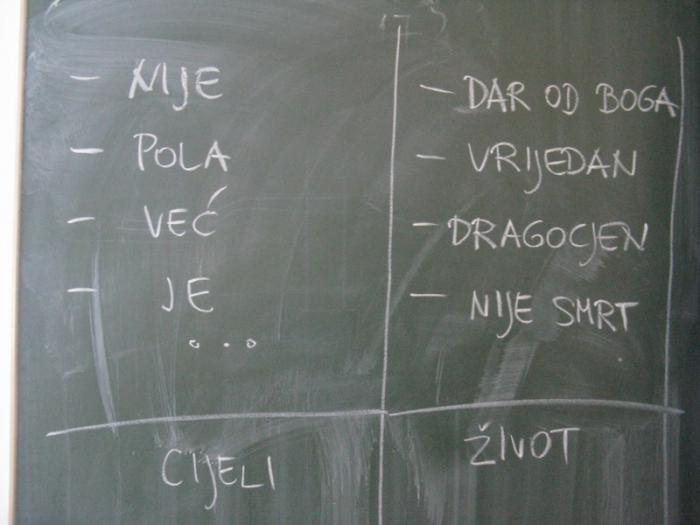 - NIJE
- POLA
- VEĆ
- JE
...
CIJELI
- DAR OD BOGA
- VRIJEDAN
- DRAGOCJEN
- NIJE SMRT
ŽIVOT